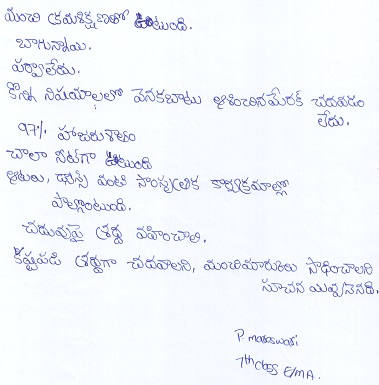 మంచి క్రమశిక్షణలో ఉంటుంది.
బాగున్నాయి.
పర్వాలేదు.
కొన్ని విషయాలలో వెనకబాటు ఆశించినమేరకు చదవడం
లేదు.
97% హాజరుశాతం
చాలా నీట్‌గా ఉంటుంది
ఆటలు, డాన్స్ వంటి సాంస్కృతిక కార్యక్రమాల్లో
పాల్గొంటుంది.
చదువుపై శ్రద్ధ వహించాలి.
కష్టపడి శ్రద్ధగా చదవాలని, మంచిమార్కులు సాధించాలని
సూచన
P maraswari
7th class E/MA.